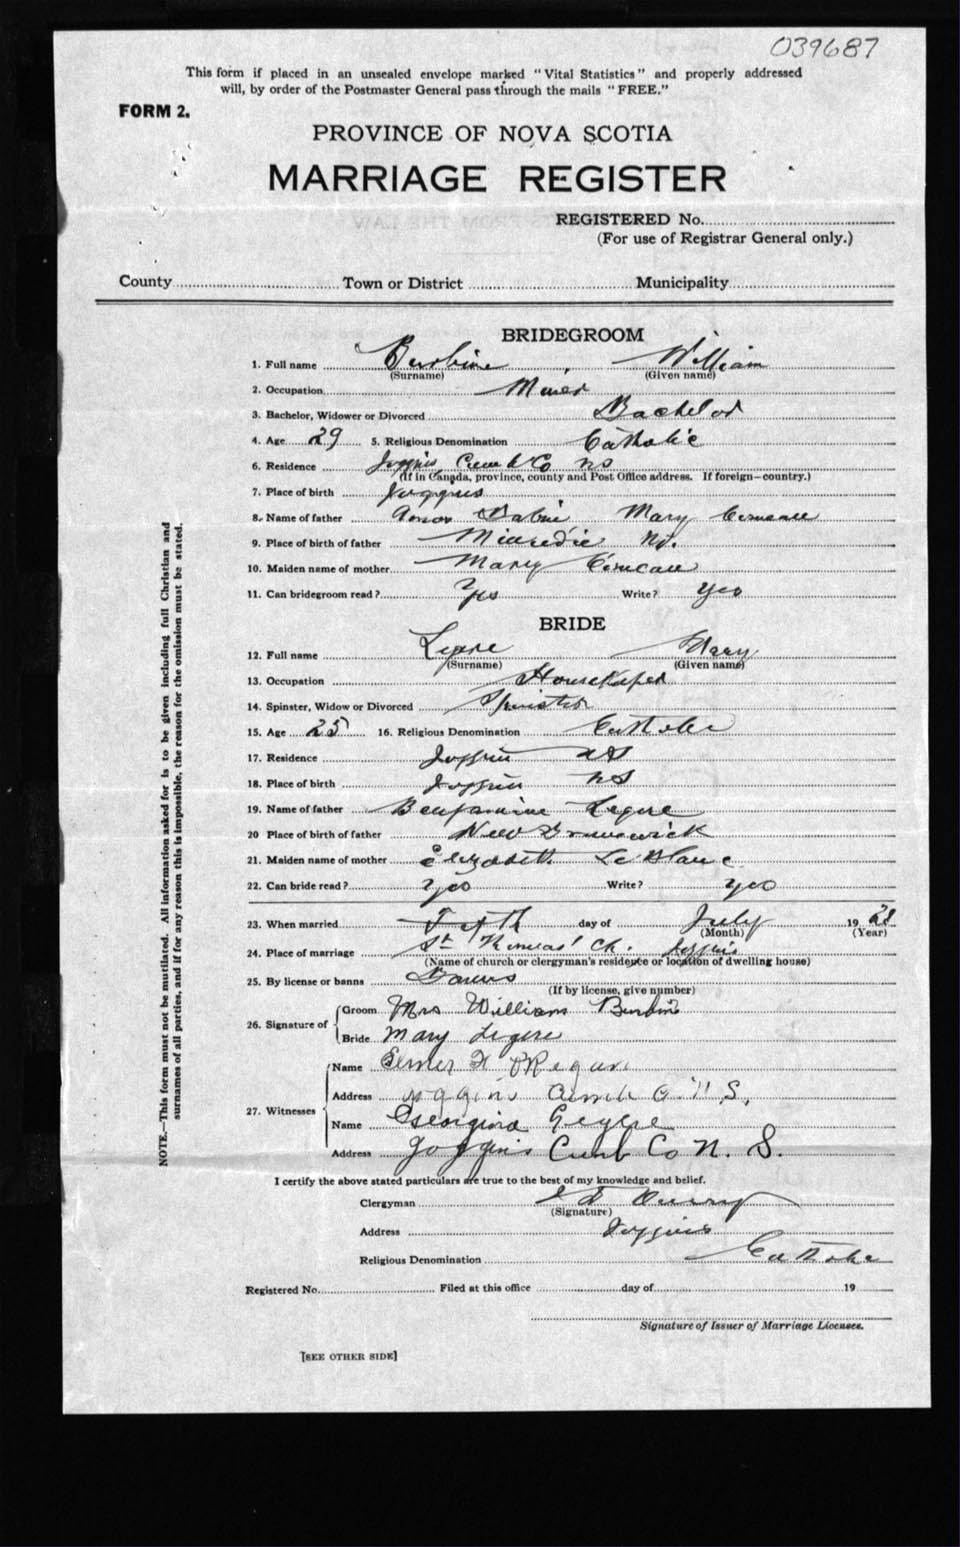 039687
This form if placed in an unsealed envelope marked "Vital Statistics" and properly addressed
will, by order of the Postmaster General pass through the mails "FREE."
FORM 2.
PROVINCE OF NOVA SCOTIA
MARRIAGE REGISTER
REGISTERED No.
(For use of Registrar General only.)
County Town or District Municipality
NOTE.—This form must not be mutilated. All information asked for is to be given including full Christian and
surnames of all parties, and if for any reason this is impossible, the reason for the omission must be stated.
BRIDEGROOM
1. Full name Burbine William
(Surname) (Given name)
2. Occupation Miner
3. Bachelor, Widower or Divorced Bachelor
4. Age 29 5. Religious Denomination Catholic
6. Residence Joggins Co NS
(If in Canada, province, county and Post Office address. If foreign—country.)
7. Place of birth Joggins
8. Name of father Mary
9. Place of birth of father
10. Maiden name of mother Mary
11. Can bridegroom read? Yes Write? Yes
BRIDE
12. Full name Legere Mary
(Surname) (Given name)
13. Occupation Housekeeper
14. Spinster, Widow or Divorced Spinster
15. Age 25 16. Religious Denomination Catholic
17. Residence Joggins NS
18. Place of birth Joggins NS
19. Name of father Benjamine Legere
20 Place of birth of father New Brunswick
21. Maiden name of mother Elizabeth LeBlanc
22. Can bride read? Yes Write? Yes
23. When married day of July 19 28
(Month) (Year)
24. Place of marriage St Thomas' Ch. Joggins
(Name of church or clergyman's residence or location of dwelling house)
25. By license or banns Banns
(If by license, give number)
26. Signature of
Groom Mrs William Burbine
Bride Mary Legere
27. Witnesses
Name Elmer
Address Joggins N.S.
Name Georgina
Address Joggins Cumb Co N. S.
I certify the above stated particulars are true to the best of my knowledge and belief.
Clergyman
(Signature)
Address Joggins
Religious Denomination Catholic
Registered No. Filed at this office day of 19
Signature of Issuer of Marriage Licenses.
[SEE OTHER SIDE]